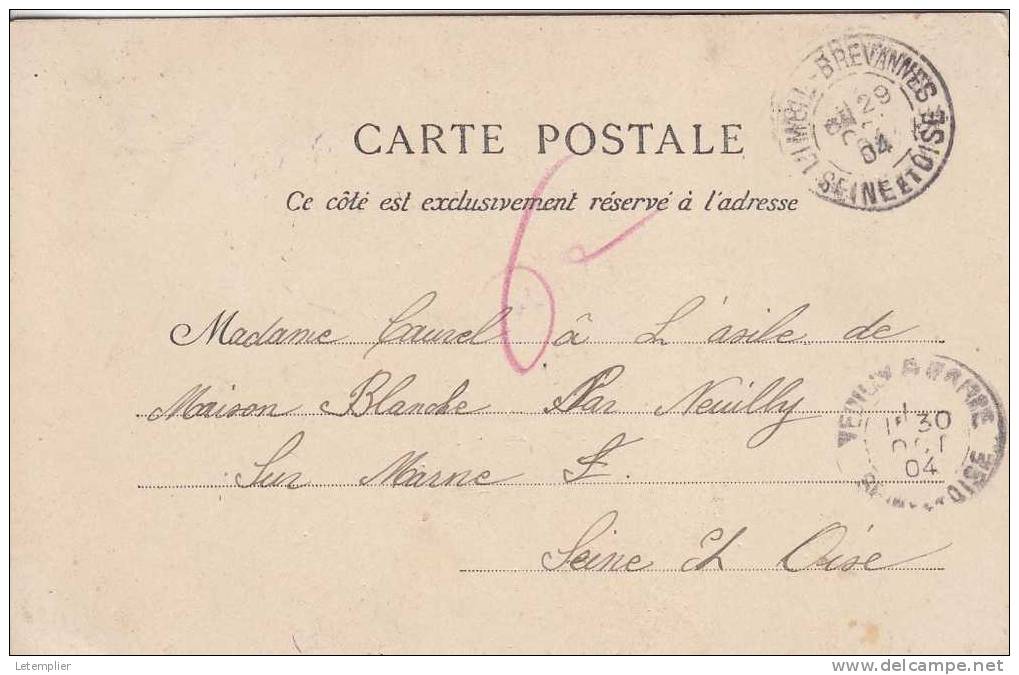 LIMEIL-BREVANNES SEINE ET OISE
29
OCT
04
CARTE POSTALE
Ce côté est exclusivement réservé à l'adresse
6
Madame Caurel â L'âsile de
Maison Blanche Par Neuilly
Sur Marne
Seine Oise
30
OCT
04
OISE
Letemplier
delcampe.net